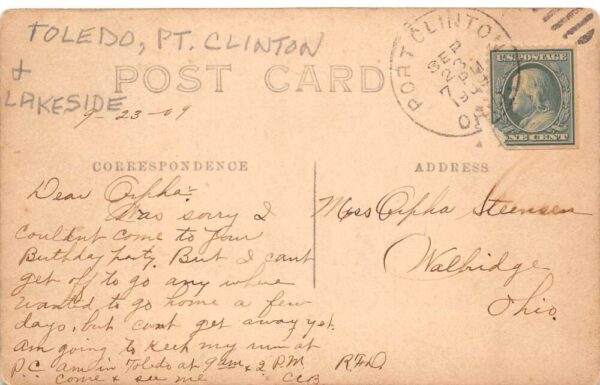 TOLEDO, PT. CLINTON
+
LAKESIDE
POST CARD
PORT CLINTON
SEP
23
7
O
U.S. POSTAGE
ONE CENT
9-23-09
CORRESPONDENCE
Dear Orpha:
Was sorry I
couldnt come to your
Birthday party. But I cant
get off to go any where
wanted to go home a few
days, but cant get away yet.
am going to keep my run at
P.C. am in Toledo at 9 am & 2 P.M
come & see me
CCB
ADDRESS
Miss Orpha Steensen
Walbridge
Ohio.
R.F.D.